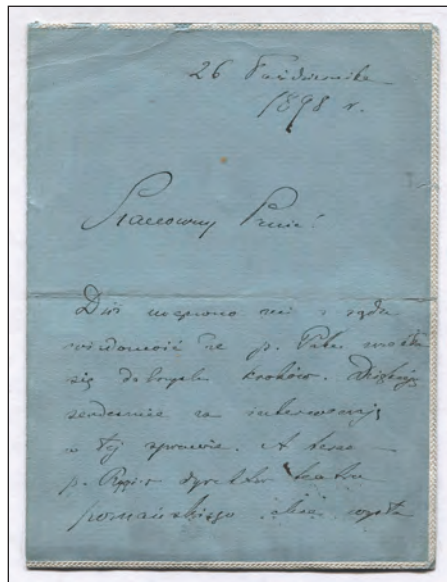 26 Października
1898 r.
Szanowny Panie!
Dziś mi z sądu
wiadomość że p.
się kroków. Dziękuję
serdecznie za interwencję
w tej sprawie. A teraz
p. dyrektor teatru
poznańskiego chce